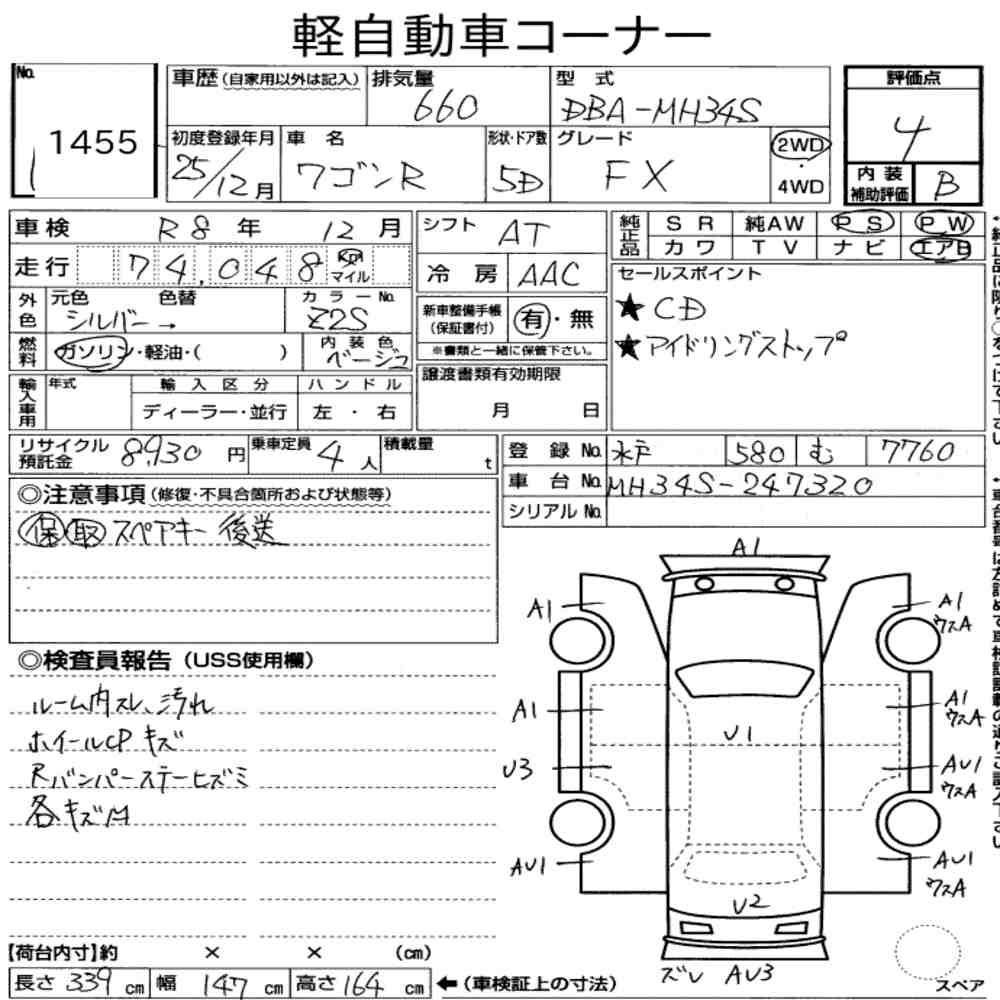 軽自動車コーナー
No. 1455
車歴 (自家用以外は記入)
排気量 660
型式 DBA-MH34S
評価点 4
初度登録年月 25/12月
車名 ワゴンR
形状・ドア数 5D
グレード FX
2WD
・
4WD
内装補助評価 B
車検 R8年 12月
走行 74,048 km マイル
シフト AT
冷房 AAC
純正品 SR 純AW PS PW
カワ TV ナビ エアB
外色 元色 シルバー→ 色替
カラーNo. Z2S
燃料 ガソリン・軽油・( )
内装色 ベージュ
新車整備手帳(保証書付) 有・無
※書類と一緒に保管下さい。
セールスポイント
★CD
★アイドリングストップ
輸入車用 年式 輸入区分 ハンドル
ディーラー・並行 左・右
譲渡書類有効期限
月 日
リサイクル預託金 8,930円
乗車定員 4人
積載量 t
登録No. 水戸 580 む 7760
車台No. MH34S-247320
シリアルNo.
◎注意事項 (修復・不具合箇所および状態等)
保 取 スペアキー 後送
◎検査員報告 (USS使用欄)
ルーム内スレ、汚れ
ホイールCP キズ
Rバンパーステーヒズミ
各キズ凹
A1
A1
A1
ウスA
A1
U1
A1
ウスA
U3
AU1
ウスA
AU1
AU1
ウスA
U2
ズレ AU3
スペア
【荷台内寸】約 × × (cm)
長さ 339 cm 幅 147 cm 高さ 164 cm
←(車検証上の寸法)